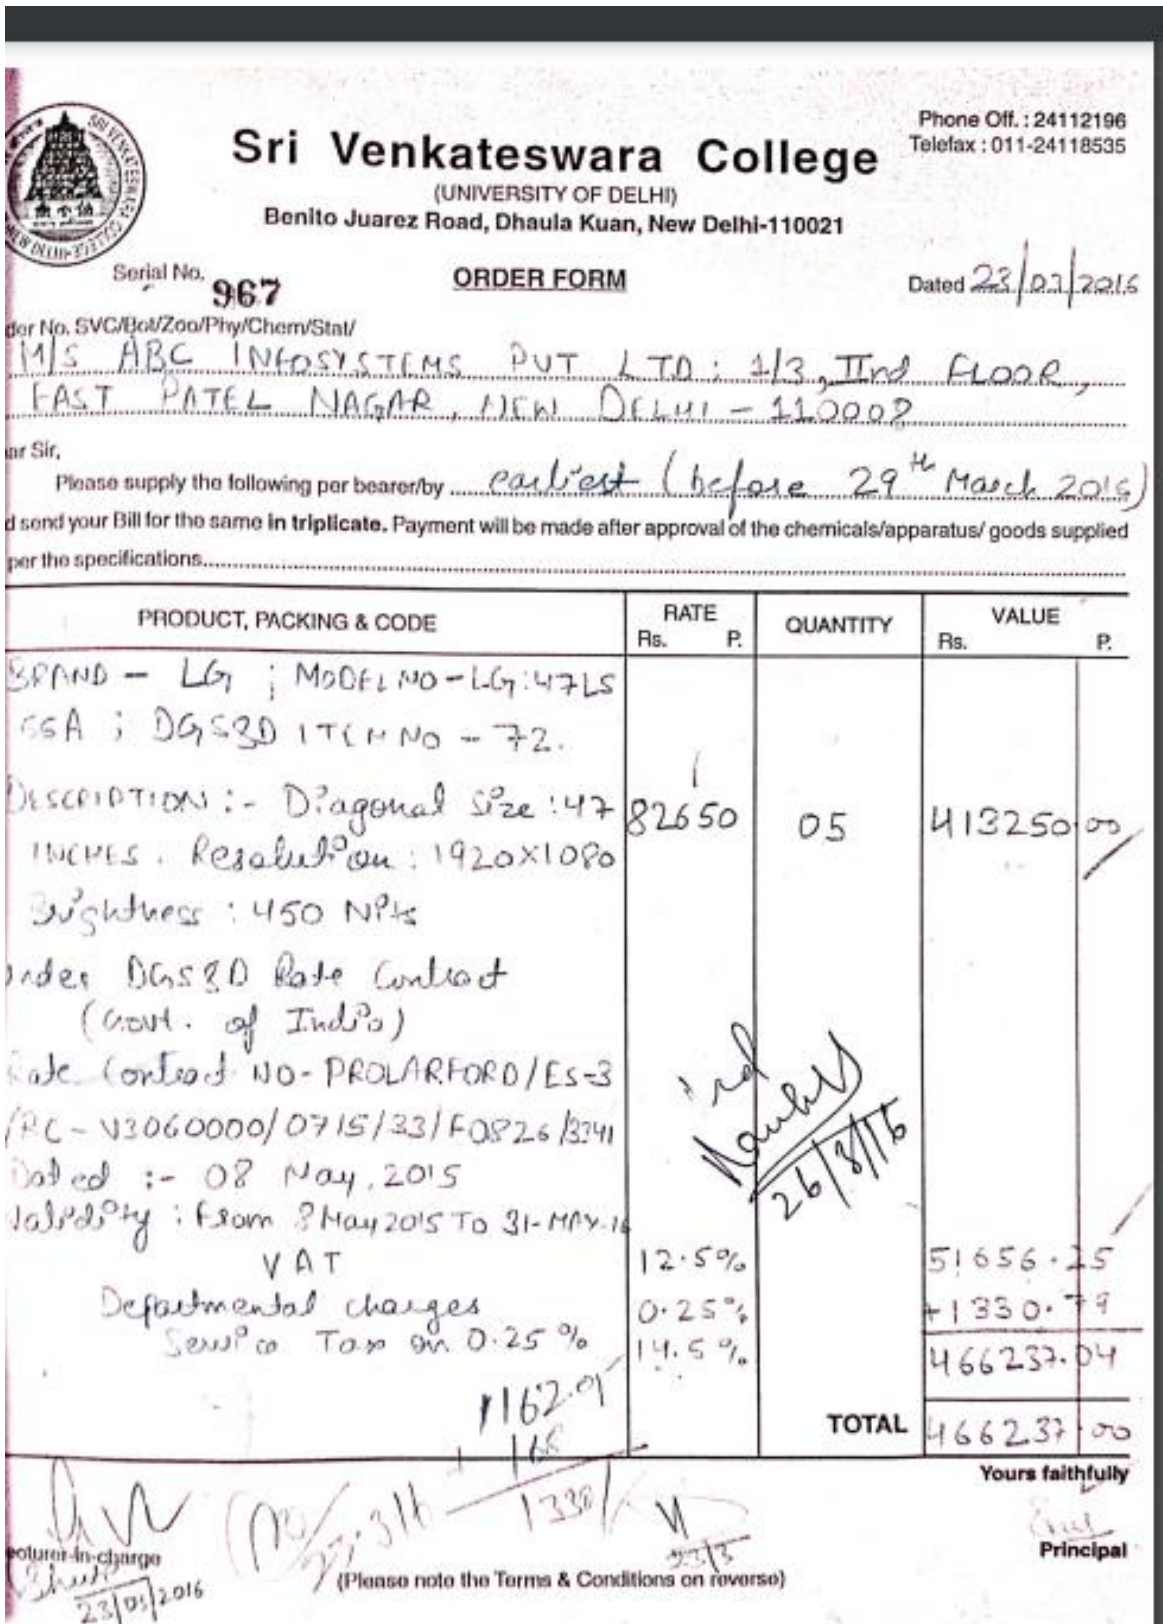 SRI VENKATESWARA COLLEGE
NEW DELHI-
Sri Venkateswara College
Phone Off. : 24112196
Telefax : 011-24118535
(UNIVERSITY OF DELHI)
Benito Juarez Road, Dhaula Kuan, New Delhi-110021
Serial No. 967
ORDER FORM
Dated 23/03/2016
der No. SVC/Bot/Zoo/Phy/Chem/Stat/
M/S ABC INFOSYSTEMS PVT LTD; 1/3, IInd FLOOR,
EAST PATEL NAGAR, NEW DELHI - 110008
ar Sir,
Please supply the following per bearer/by earliest (before 29th March 2016)
d send your Bill for the same in triplicate. Payment will be made after approval of the chemicals/apparatus/ goods supplied
per the specifications
PRODUCT, PACKING & CODE RATE QUANTITY VALUE
Rs. P. Rs. P.
BRAND - LG ; MODEL NO - LG:47LS
55A ; DGS&D ITEM NO - 72.
DESCRIPTION :- Diagonal Size : 47 82650 05 413250 00
INCHES. Resolution : 1920X1080
Brightness : 450 Nits
Under DGS&D Rate Contract
(Govt. of India)
Rate Contract NO- PROLARFORD/ES-3
/RC-V3060000/0715/33/F0826/3341
Dated :- 08 May, 2015
26/3/16
Validity : From 8 May 2015 To 31-MAY-16
VAT 12.5% 51656.25
Departmental charges 0.25% +1330.79
Service Tax on 0.25% 14.5% 466237.04
1162.01
168
TOTAL 466237 00
1330/
Yours faithfully
23.3.16
23/3
ecturer-in-charge
Principal
23/03/2016
(Please note the Terms & Conditions on reverse)